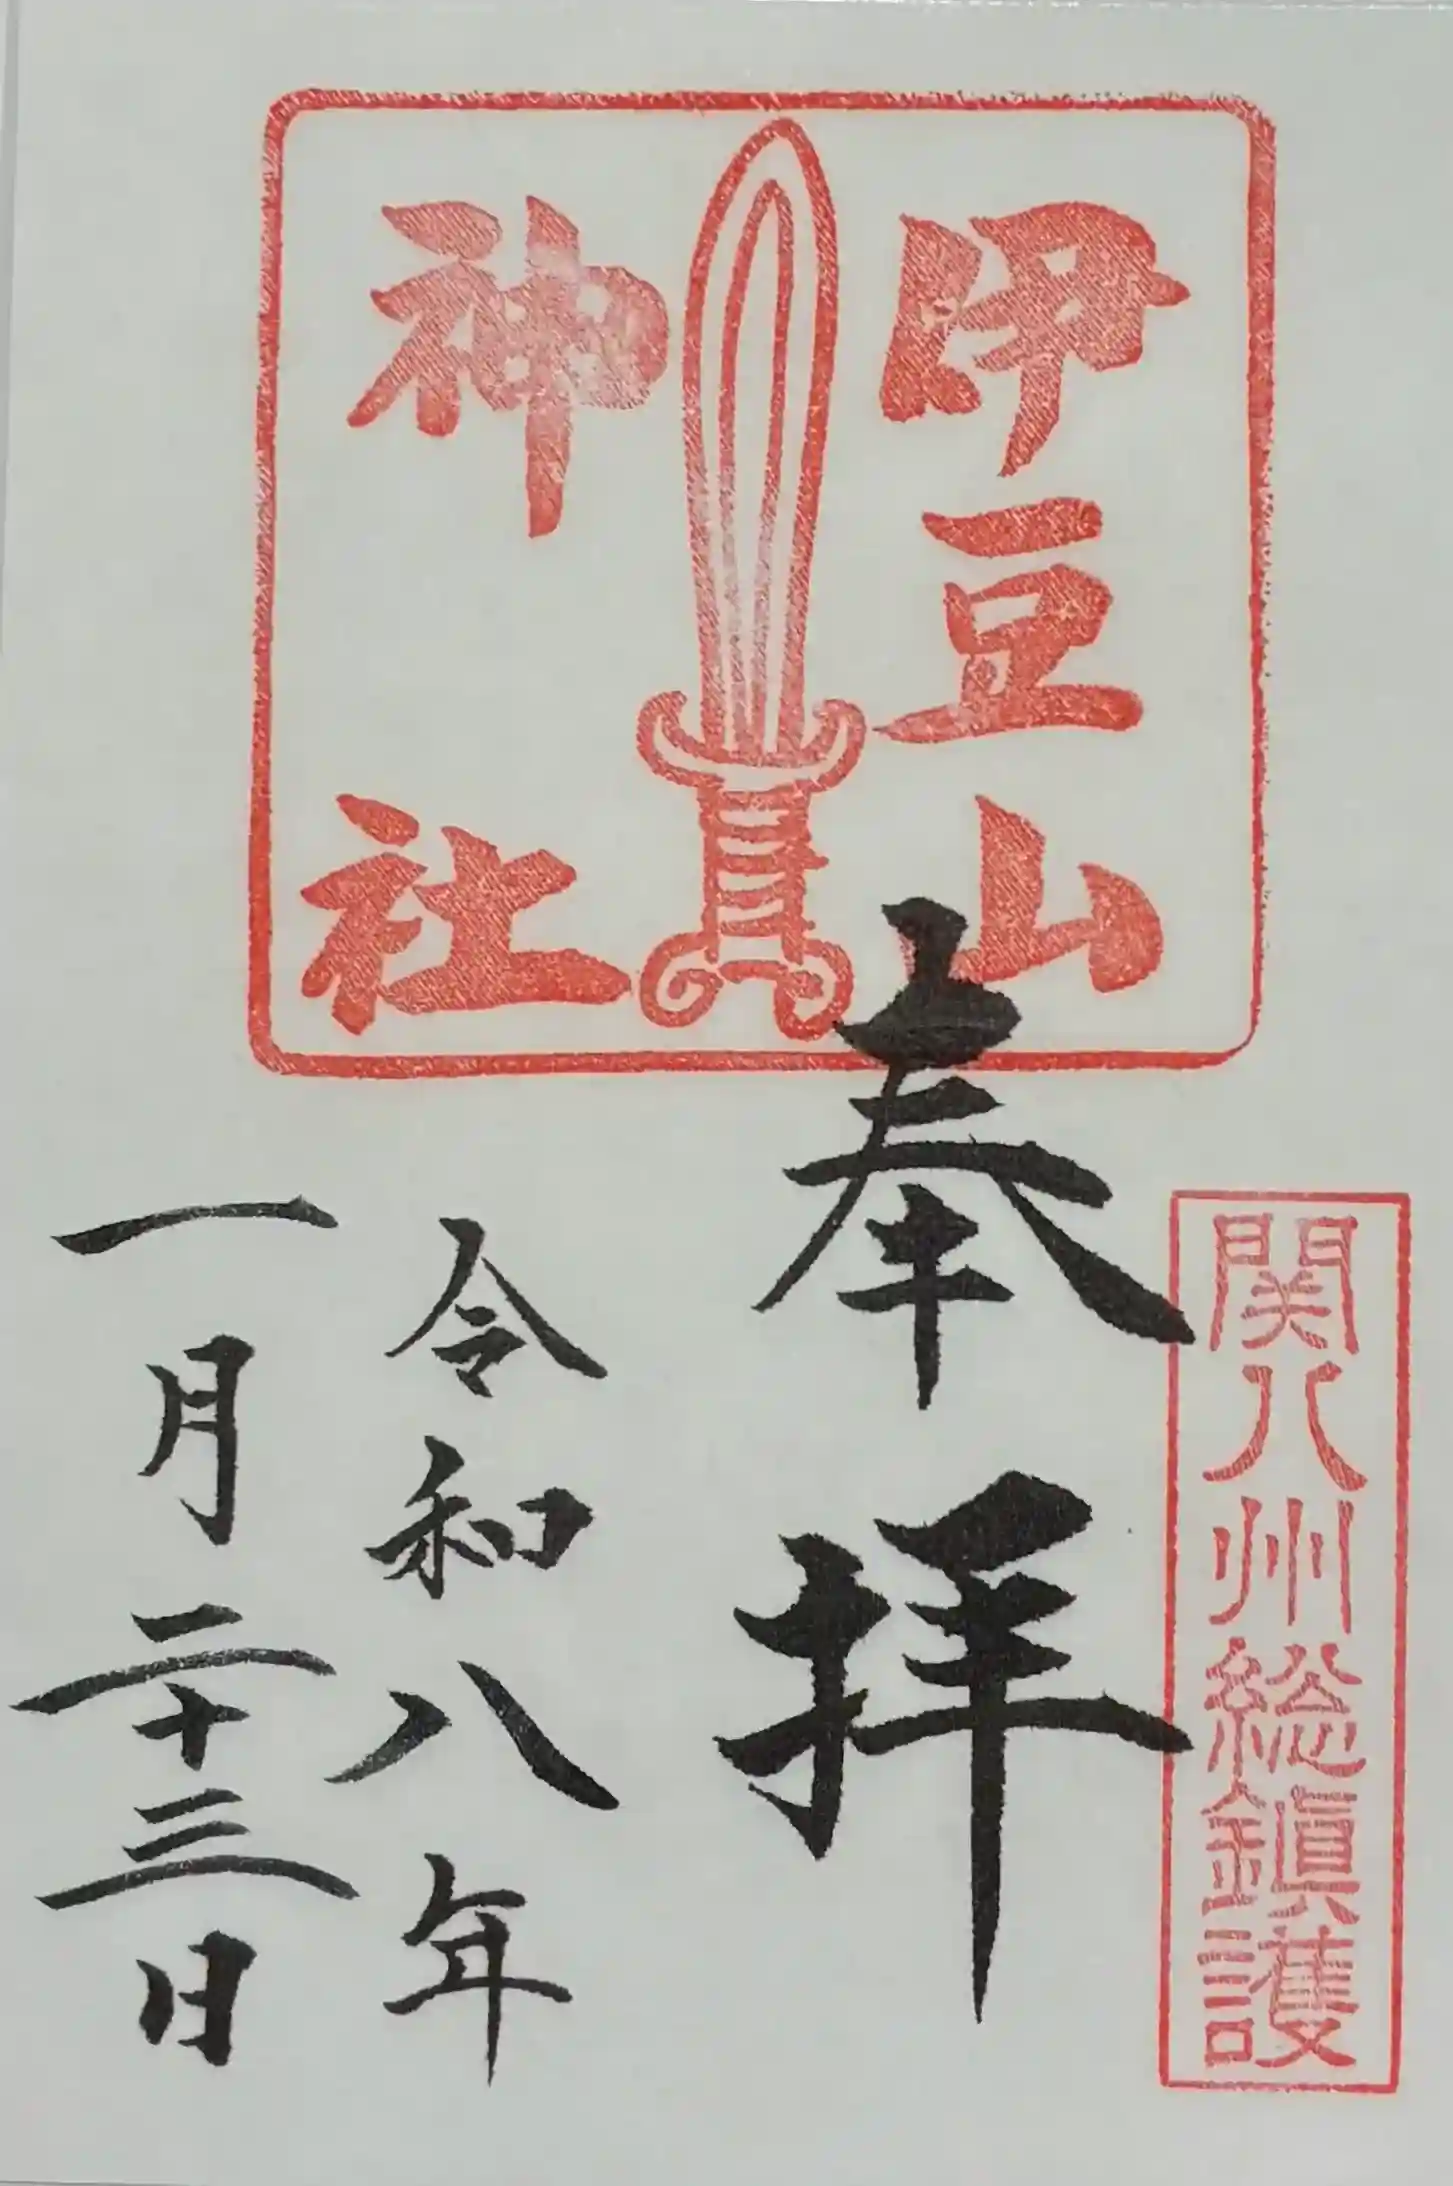 関八州総鎮護
奉拝
伊豆山
神社
令和八年
一月二十三日